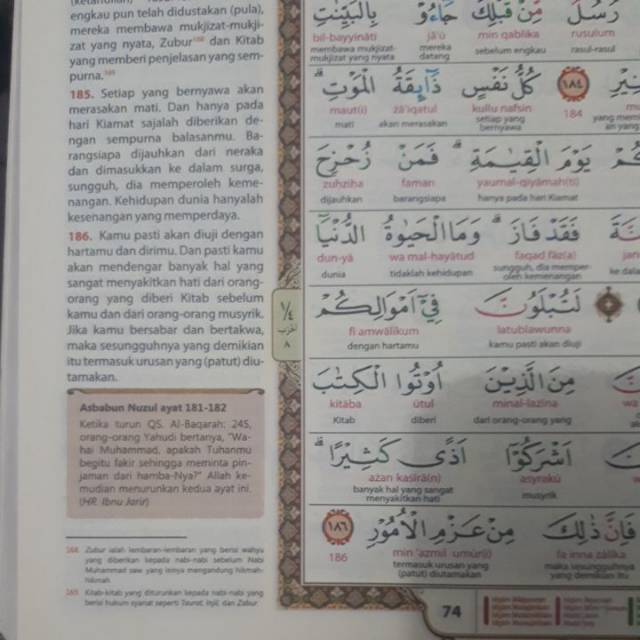 engkau pun telah didustakan (pula),
mereka membawa mukjizat-mukji-
zat yang nyata, Zubur¹⁶⁴ dan Kitab
yang memberi penjelasan yang sem-
purna.¹⁶⁵
185. Setiap yang bernyawa akan
merasakan mati. Dan hanya pada
hari Kiamat sajalah diberikan de-
ngan sempurna balasanmu. Ba-
rangsiapa dijauhkan dari neraka
dan dimasukkan ke dalam surga,
sungguh, dia memperoleh keme-
nangan. Kehidupan dunia hanyalah
kesenangan yang memperdaya.
186. Kamu pasti akan diuji dengan
hartamu dan dirimu. Dan pasti kamu
akan mendengar banyak hal yang
sangat menyakitkan hati dari orang-
orang yang diberi Kitab sebelum
kamu dan dari orang-orang musyrik.
Jika kamu bersabar dan bertakwa,
maka sesungguhnya yang demikian
itu termasuk urusan yang (patut) diu-
tamakan.
Asbabun Nuzul ayat 181-182
Ketika turun QS. Al-Baqarah: 245,
orang-orang Yahudi bertanya, "Wa-
hai Muhammad, apakah Tuhanmu
begitu fakir sehingga meminta pin-
jaman dari hamba-Nya?" Allah ke-
mudian menurunkan kedua ayat ini.
(HR. Ibnu Jarir)
164 Zubur ialah lembaran-lembaran yang berisi wahyu
yang diberikan kepada nabi-nabi sebelum Nabi
Muhammad saw. yang isinya mengandung hikmah-
hikmah.
165 Kitab-kitab yang diturunkan kepada nabi-nabi yang
berisi hukum syariat seperti Taurat, Injil, dan Zabur.
رُسُلٌ مِّنْ قَبْلِكَ جَاۤءُوْ بِالْبَيِّنٰتِ
rusulum min qablika jā'ū bil-bayyināti
rasul-rasul sebelum engkau mereka datang membawa mukjizat-mukjizat yang nyata
١٨٤ كُلُّ نَفْسٍ ذَاۤىِٕقَةُ الْمَوْتِۗ
184 kullu nafsin żā'iqatul maut(i)
setiap yang bernyawa akan merasakan mati
يَوْمَ الْقِيٰمَةِۗ فَمَنْ زُحْزِحَ
yaumal-qiyāmah(ti) faman zuḥziḥa
hanya pada hari Kiamat barangsiapa dijauhkan
فَقَدْ فَازَۗ وَمَا الْحَيٰوةُ الدُّنْيَآ
faqad fāz(a) wa mal-ḥayātud dun-yā
sungguh, dia memperoleh kemenangan tidaklah kehidupan dunia
لَتُبْلَوُنَّ فِيْٓ اَمْوَالِكُمْ
latublawunna fī amwālikum
kamu pasti akan diuji dengan hartamu
مِنَ الَّذِيْنَ اُوْتُوا الْكِتٰبَ
minal-lażīna ūtul kitāba
dari orang-orang yang diberi Kitab
اَشْرَكُوْٓا اَذًى كَثِيْرًاۗ
asyrakū ażan kaṡīrā(n)
musyrik banyak hal yang sangat menyakitkan hati
فَاِنَّ ذٰلِكَ مِنْ عَزْمِ الْاُمُوْرِ ١٨٦
fa inna żālika min 'azmil-umūr(i) 186
maka sesungguhnya yang demikian itu termasuk urusan yang (patut) diutamakan
74